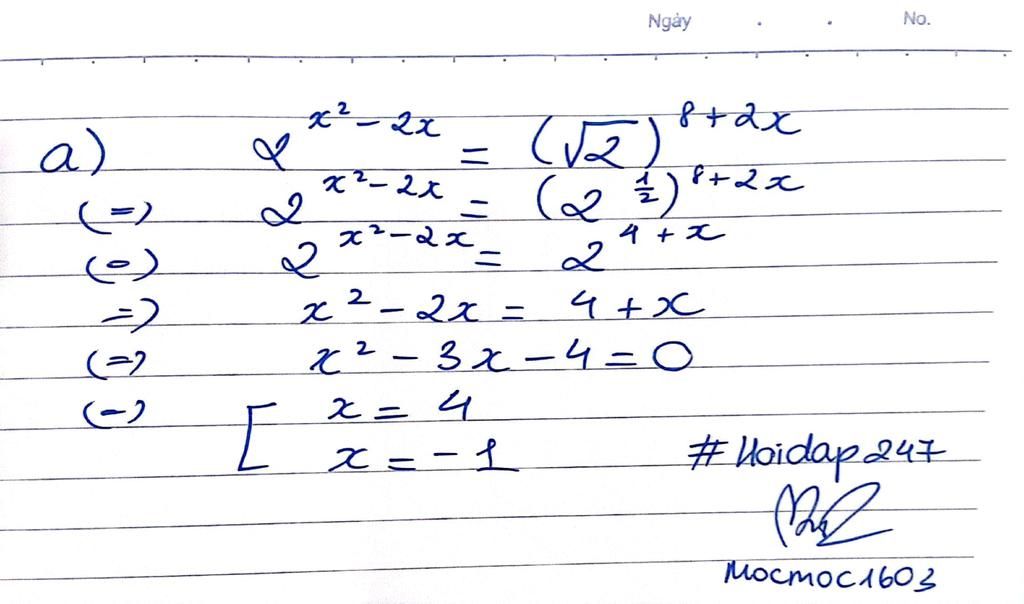 Ngày . . No.
a) 2^{x² - 2x} = (√2)^{8 + 2x}
(=) 2^{x² - 2x} = (2^{1/2})^{8 + 2x}
(=) 2^{x² - 2x} = 2^{4 + x}
=) x² - 2x = 4 + x
(=) x² - 3x - 4 = 0
(=) [ x = 4
x = -1
#Hoidap247
Mocmoc1603